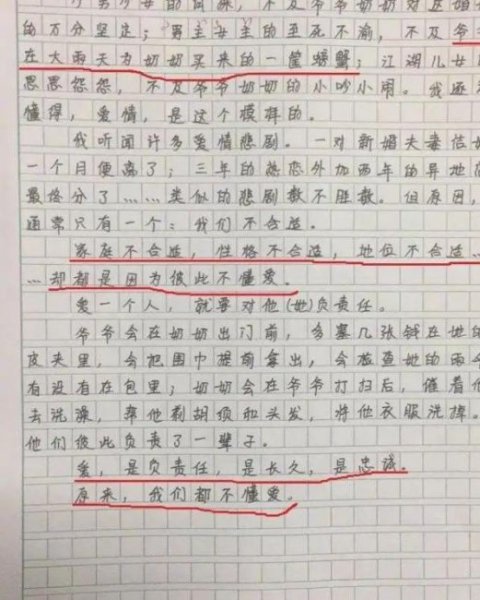 的万分坚定；男主女主的至死不渝，不及爷
在大雨天为奶奶买来的一筐螃蟹；江湖儿女
恩恩怨怨，不及爷爷奶奶的小吵小闹。我逐
懂得，爱情，是这个模样的。
我听闻许多爱情悲剧。一对新婚夫妻结
一个月便离了；三年的热恋外加两年的异地
最终分了……类似的悲剧数不胜数。但原因，
通常只有一个：我们不合适。
家庭不合适，性格不合适，地位不合适…
…却都是因为彼此不懂爱。
爱一个人，就要对他(她)负责任。
爷爷会在奶奶出门前，多塞几张钱在她的
皮夹里，会把围巾提前拿出，会检查她的雨
有没有在包里；奶奶会在爷爷打扫后，催着他
去洗澡，帮他剃胡须和头发，将他衣服洗掉。
他们彼此负责了一辈子。
爱，是负责任，是长久，是忠诚。
原来，我们都不懂爱。